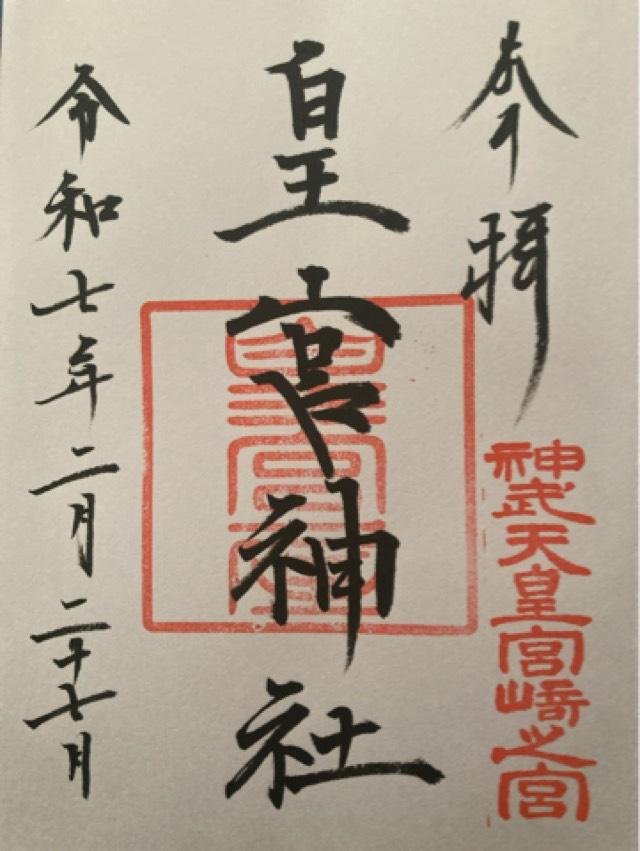 奉拝
神武天皇宮崎之宮
皇宮神社
令和七年二月二十七日